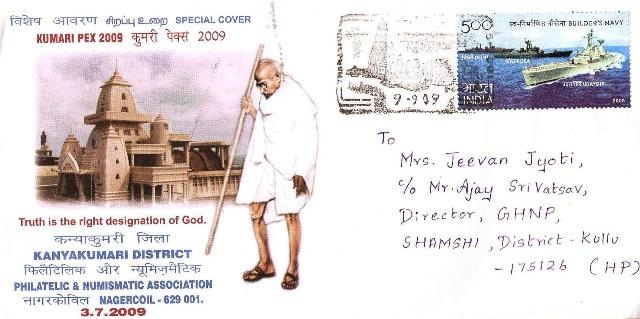 विशेष आवरण சிறப்பு உறை SPECIAL COVER
KUMARI PEX 2009 कुमरी पेक्स 2009
Truth is the right designation of God.
कन्याकुमारी जिला
KANYAKUMARI DISTRICT
फिलैटिलिक और न्यूमिज़मैटिक
PHILATELIC & NUMISMATIC ASSOCIATION
नागरकोविल NAGERCOIL - 629 001.
3.7.2009
500
स्व-निर्माणित नौसेना BUILDER'S NAVY
भारत
INDIA
UDAYGIRI
2009
To
Mrs. Jeevan Jyoti,
C/o Mr. Ajay Srivatsav,
Director, GHNP,
SHAMSHI, District - Kullu
- 175126 (HP)